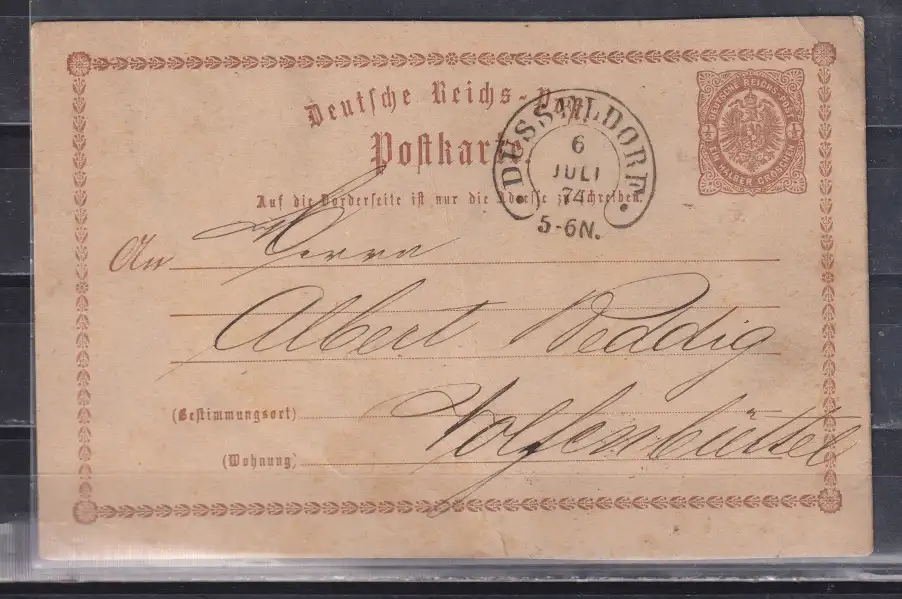 Deutsche Reichs-Post
Postkarte
Auf die Vorderseite ist nur die Adresse zu schreiben.
DEUTSCHE REICHS-POST
½ ½
EIN HALBER GROSCHEN
DÜSSELDORF
6
JULI
74
5-6N.
An Herrn
Albert Weddig
(Bestimmungsort) Wolfenbüttel
(Wohnung)